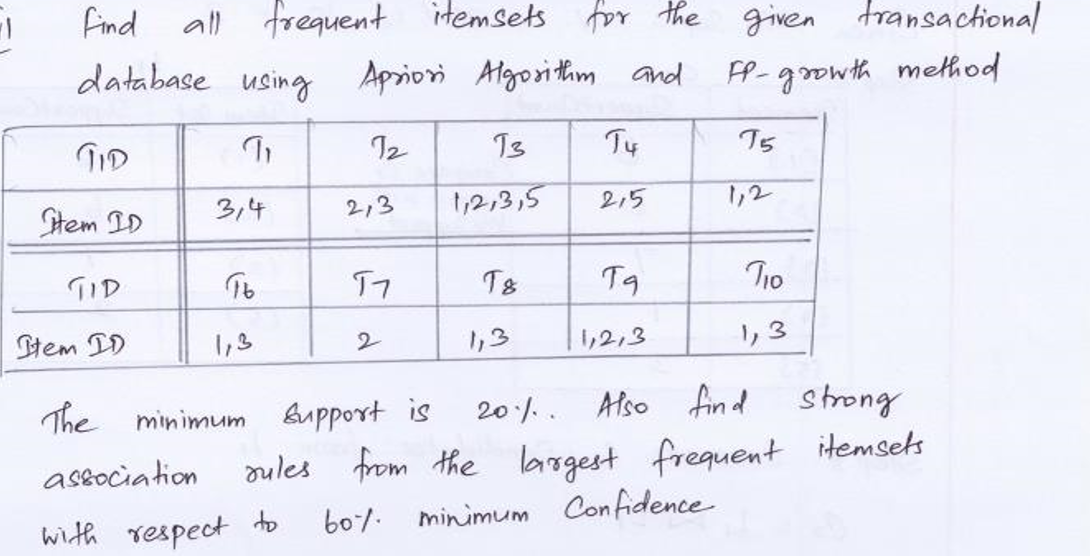 Find all frequent itemsets for the given transactional
database using Apriori Algorithm and FP-growth method
TID T1 T2 T3 T4 T5
Item ID 3,4 2,3 1,2,3,5 2,5 1,2
TID T6 T7 T8 T9 T10
Item ID 1,3 2 1,3 1,2,3 1,3
The minimum support is 20%. Also find strong
association rules from the largest frequent itemsets
with respect to 60%. minimum Confidence